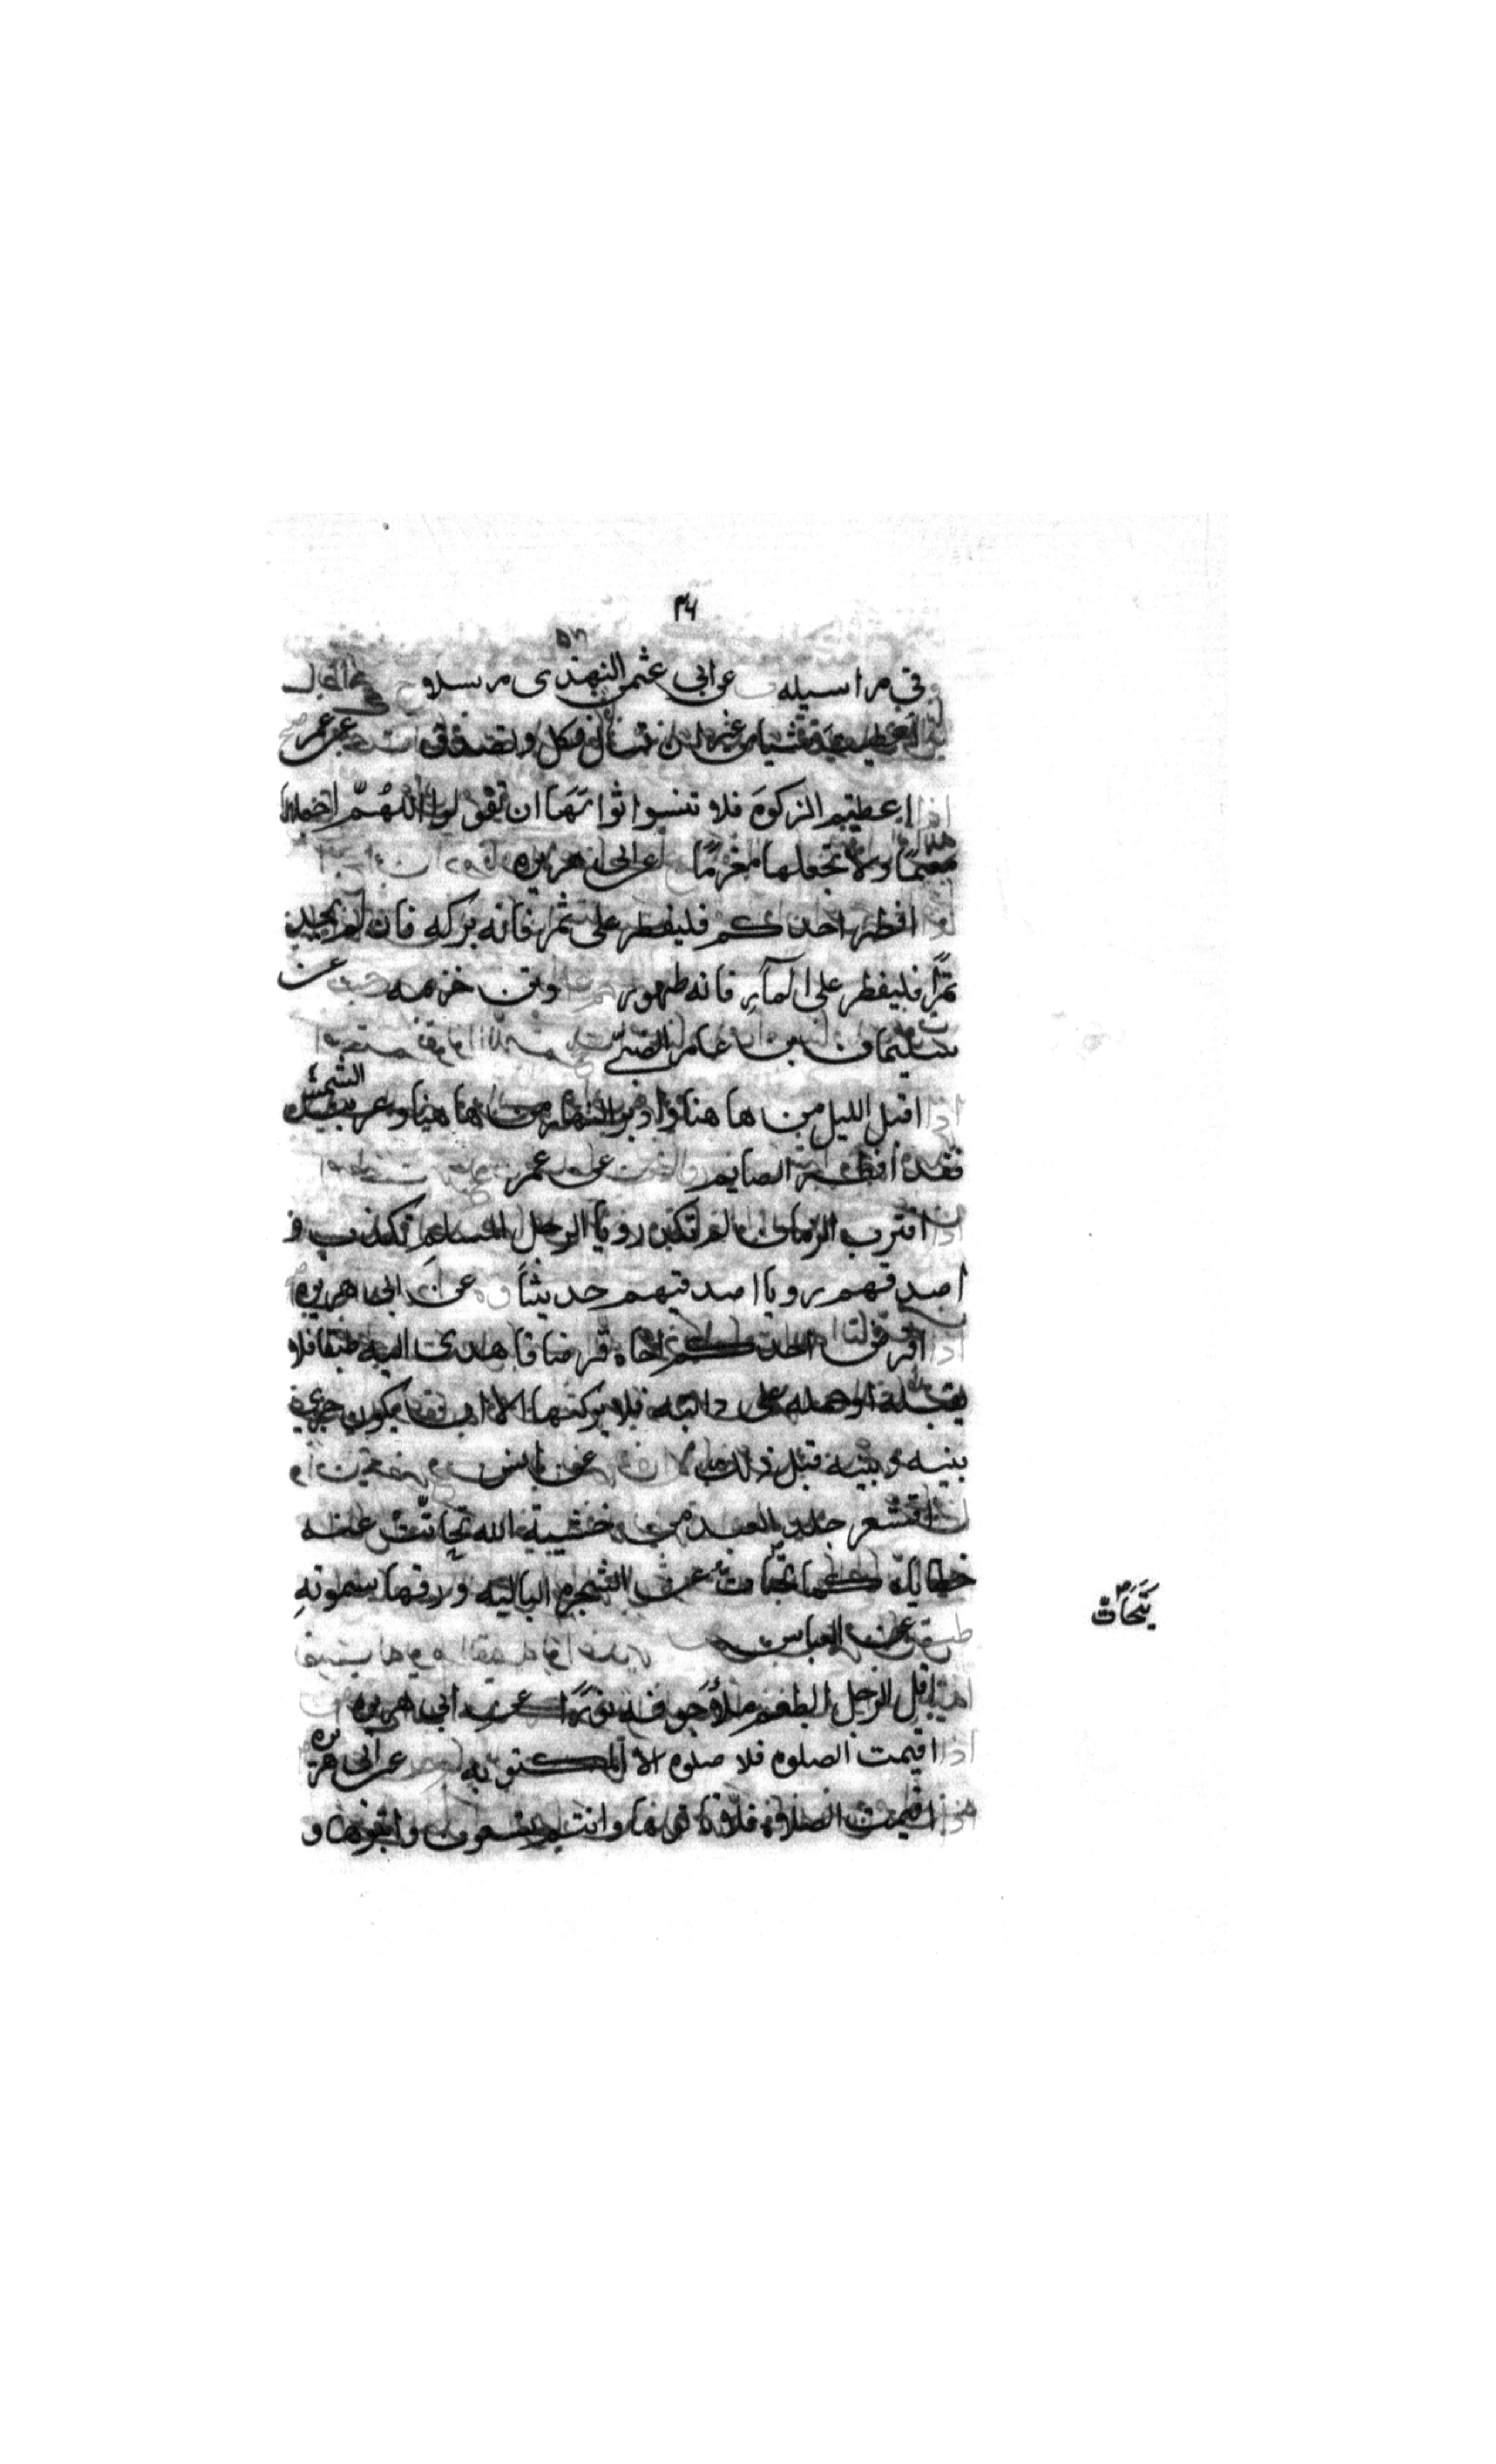 ٣٦
في مراسيله عن ابي عثمن النهدى مرسلا
اعطيت شيئا من غير ان تسأل فكل وتصدق عن عمر
اذا اعطيتم الزكوة فلا تنسوا ثوابها ان تقولوا اللهم اجعلها
مغنما ولا تجعلها مغرما عن ابى هريره
اذا افطر احدكم فليفطر على تمر فانه بركه فان لم يجد
تمرًا فليفطر على المآء فانه طهور وبن خزيمه عن
سليمان بن عامر الضبي
اذا اقبل الليل من ها هنا وادبر النهار من ها هنا وغربت الشمس
فقد افطر الصايم عن عمر
اذا اقترب الزمان لم تكد رويا الرجل المسلم تكذب و
اصدقهم رويا اصدقهم حديثاً عن ابى هريره
اذا اقرض احدكم اخاه قرضا فاهدى اليه طبقا فلا
يقبله او حمله على دابته فلا يركبها الا ان يكون جرى
بينه وبينه قبل ذلك عن انس
اذا اقشعر جلد العبد من خشية الله تحاتت عنه
خطاياه كما تحات عن الشجره الباليه ورقها سمويه
طب عن العباس
يتحات
اذا اقل الرجل الطعم ملأ جوفه نورًا عن ابى هريره
اذا اقيمت الصلوه فلا صلوه الا المكتوبه عن ابى هريره
اذا اقيمت الصلاة فلا تاتوها وانتم تسعون واتوها و